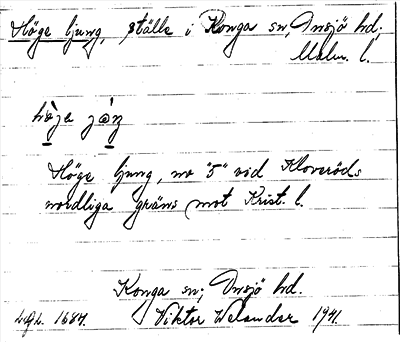 Höge ljung, ställe i Konga sn, Onsjö hd;
Malm. l.
hö̀ja jɵ̀ŋ
Höge ljung, no "5" vid Kloveröds
nordliga gräns mot Krist. l.
Konga sn; Onsjö hd.
Viktor Welander 1941.